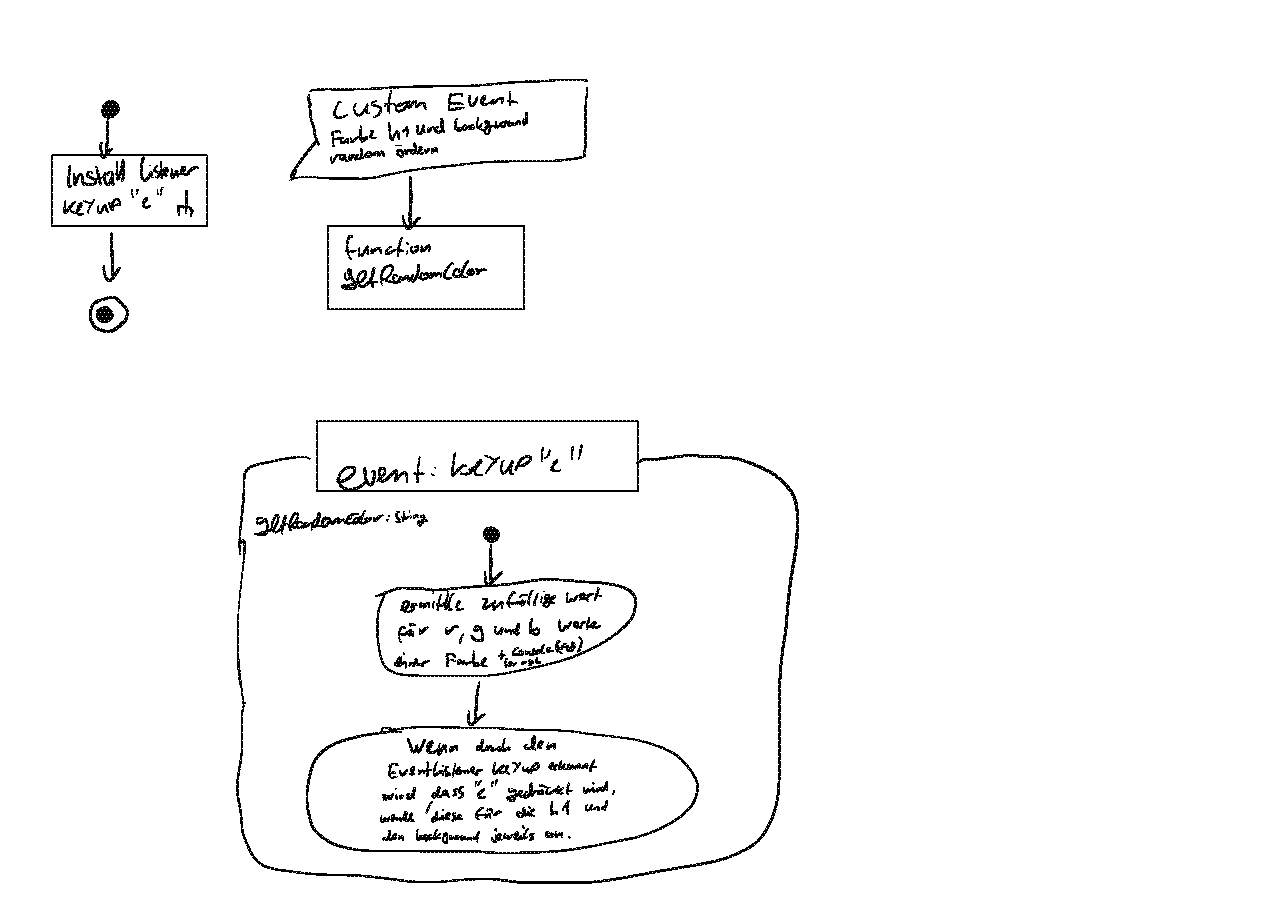 Install Listener
KEYUP "e"
Custom Event
Farbe h1 und background
random ändern
function
getRandomColor
event: KEYUP "e"
getRandomColor: String
ermittle zufällige wert
für r, g und b werte
einer Farbe +
Wenn durch den
EventListener KEYUP erkannt
wird dass "e" gedrückt wird,
wende diese für die h1 und
den background jeweils an.